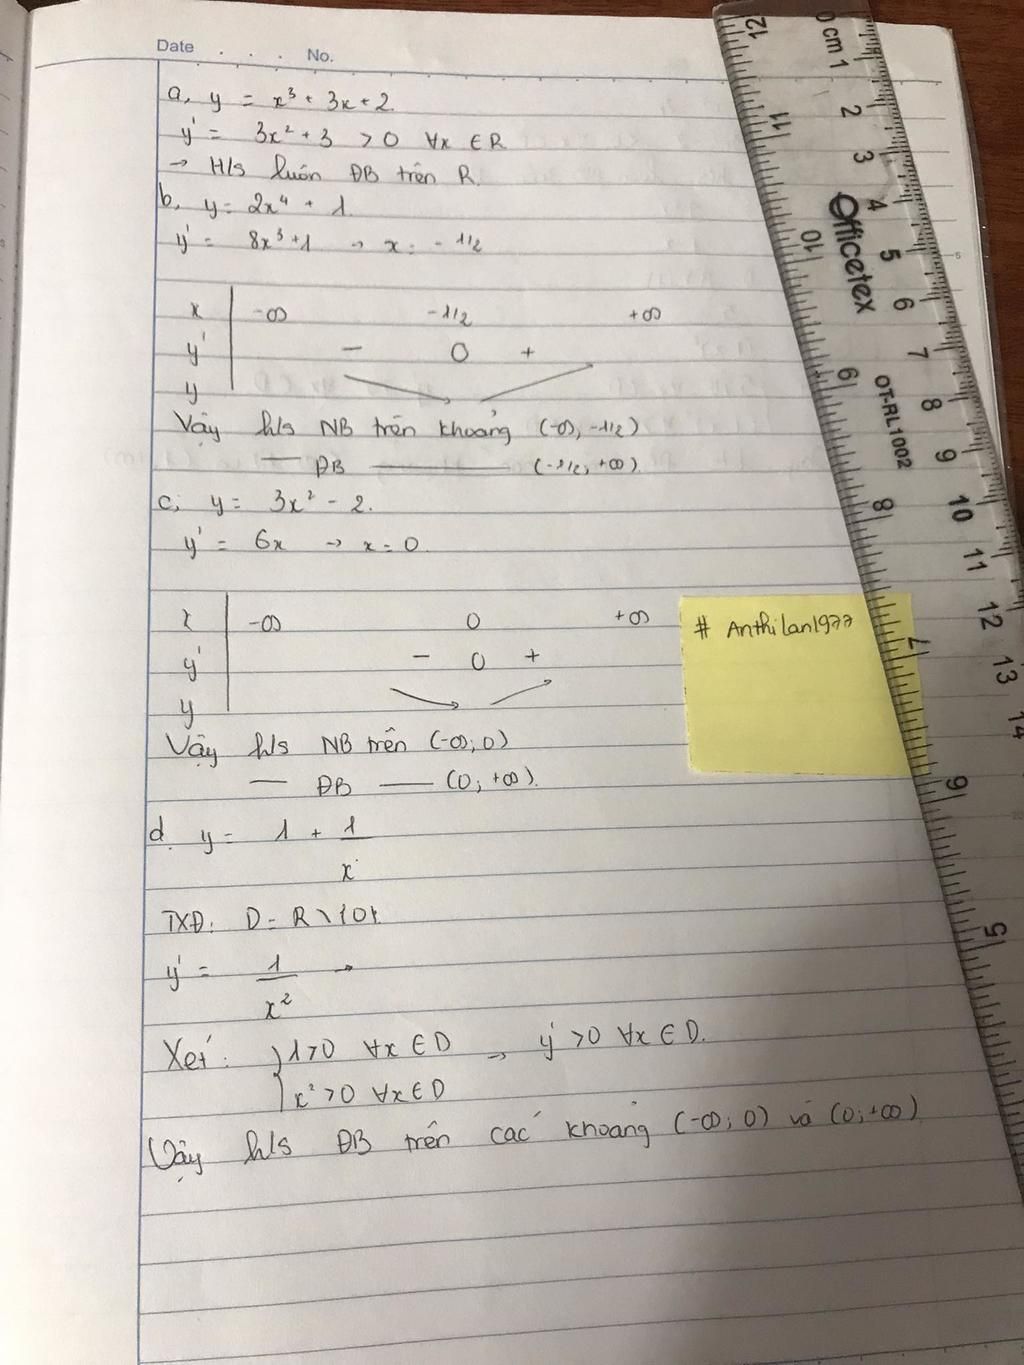 Date . . . No.
a, y = x³ + 3x + 2.
y' = 3x² + 3 > 0 ∀x ∈ R
→ H/s luôn ĐB trên R.
b, y = 2x⁴ + 1.
y' = 8x³ + 1 → x = - 1/2
x -∞ -1/2 +∞
y' - 0 +
y
Vậy h/s NB trên khoảng (-∞, -1/2)
— ĐB ——— (-1/2, +∞)
c, y = 3x² - 2.
y' = 6x → x = 0.
x -∞ 0 +∞
y' - 0 +
y
Vậy h/s NB trên (-∞; 0)
— ĐB —— (0; +∞).
d. y = 1 + 1/x
TXĐ: D = R \ {0}.
y' = 1/x² →
Xét: { 1 > 0 ∀x ∈ D → y' > 0 ∀x ∈ D.
x² > 0 ∀x ∈ D
Vậy h/s ĐB trên các khoảng (-∞; 0) và (0; +∞)
# Anthilan1977
0 cm 1 2 3 4 5 6 7 8 9 10 11 12 13 14
Officetex
OT-RL1002
12 11 10 9 8 7 6 5